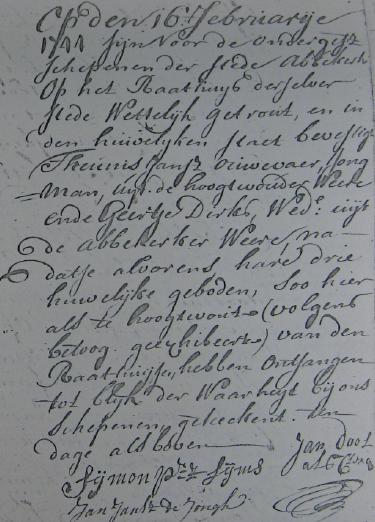 Op den 16 februarije
1711 sijn voor de onderges:
Schepenen der stede Abbekerk
op het Raathuys derselver
stede Wettelijk getrout, en in
den huwelyken staet bevestigt
Theunis Jansz ouwevaer, Jong
=man, uijt de hoogtwouder Weere
ende Geertje Dirks, Wed:e uijt
de Abbekerker Weere, na=
datse alvorens hare drie
huwelijke geboden, soo hier
als te hoogtwout (volgens
betoog geexhibeert) van den
Raathuijse, hebben ontfangen
tot blijk der Waarheyt bij ons
Schepenen geteekent. ten
dage als boven
Jan Doot
Sijmon Ptrz Sijms
Jan Jansz de Jongh